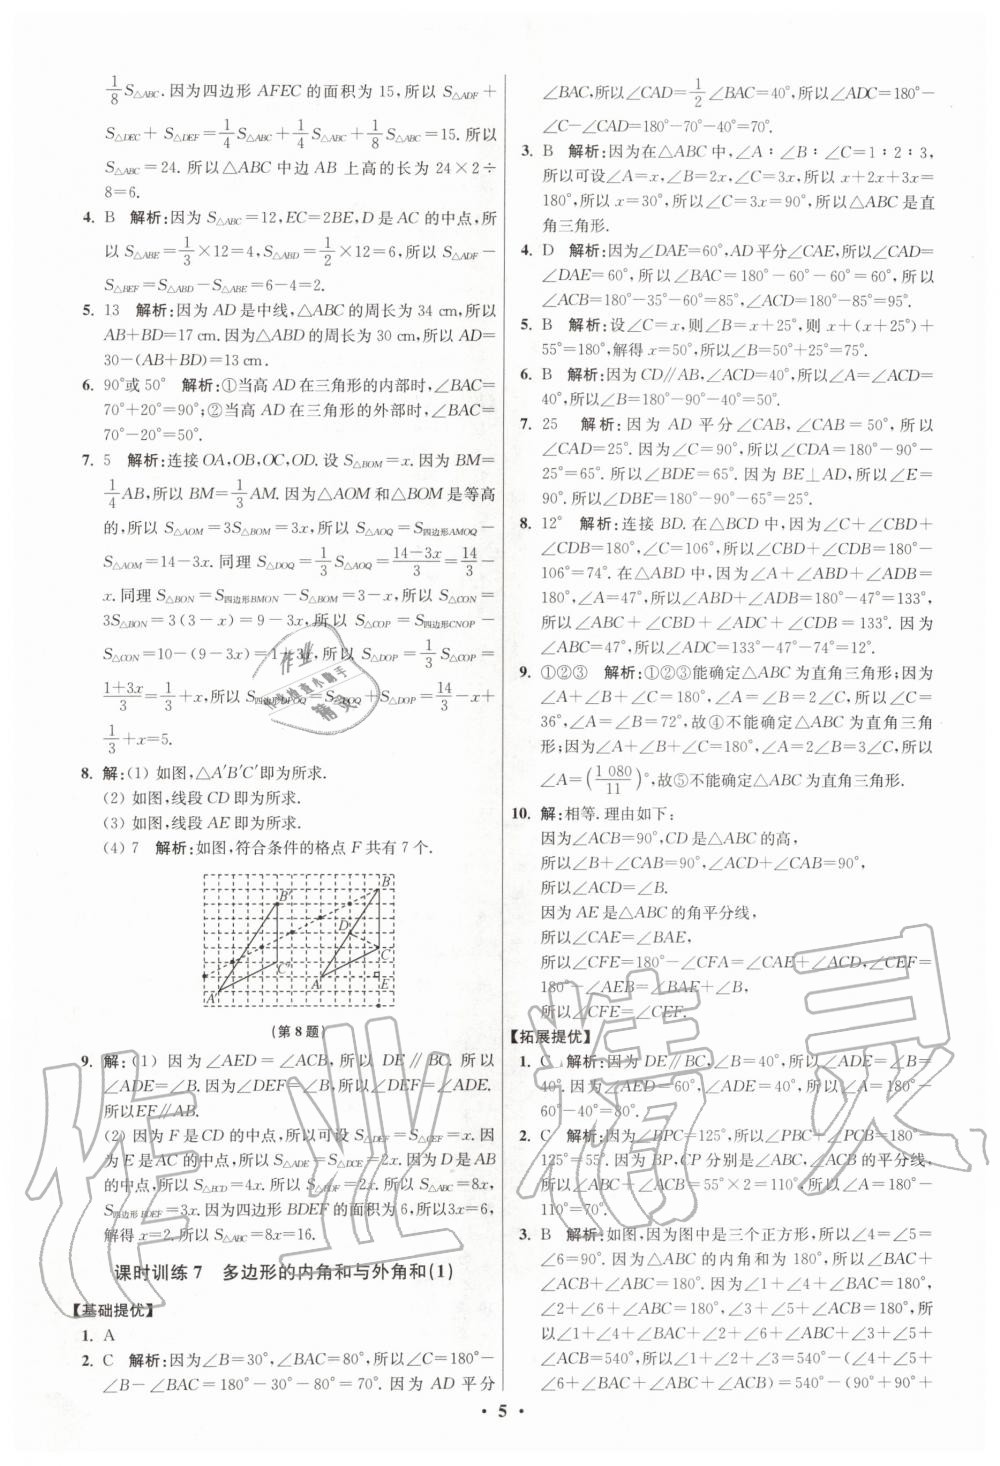 1/8 S△ABC.因为四边形 AFEC 的面积为 15,所以 S△ADF+
S△DEC+S△DEF=1/4 S△ABC+1/4 S△ABC+1/8 S△ABC=15.所以
S△ABC=24.所以△ABC 中边 AB 上高的长为 24×2÷
8=6.
4. B 解析:因为 S△ABC=12,EC=2BE,D 是 AC 的中点,所
以 S△ABE=1/3×12=4,S△ABD=1/2×12=6,所以 S△ADF-
S△BEF=S△ABD-S△ABE=6-4=2.
5. 13 解析:因为 AD 是中线,△ABC 的周长为 34 cm,所以
AB+BD=17 cm.因为△ABD 的周长为 30 cm,所以 AD=
30-(AB+BD)=13 cm.
6. 90°或 50° 解析:①当高 AD 在三角形的内部时,∠BAC=
70°+20°=90°;②当高 AD 在三角形的外部时,∠BAC=
70°-20°=50°.
7. 5 解析:连接 OA,OB,OC,OD.设 S△BOM=x.因为 BM=
1/4 AB,所以 BM=1/3 AM.因为△AOM 和△BOM 是等高
的,所以 S△AOM=3S△BOM=3x,所以 S△AOQ=S四边形AMOQ-
S△AOM=14-3x.同理 S△DOQ=1/3 S△AOQ=(14-3x)/3=14/3-
x.同理 S△BON=S四边形BMON-S△BOM=3-x,所以 S△CON=
3S△BON=3(3-x)=9-3x,所以 S△COP=S四边形CNOP-
S△CON=10-(9-3x)=1+3x,所以 S△DOP=1/3 S△COP=
(1+3x)/3=1/3+x,所以 S四边形DPOQ=S△DOQ+S△DOP=14/3-x+
1/3+x=5.
8. 解:(1) 如图,△A'B'C'即为所求.
(2) 如图,线段 CD 即为所求.
(3) 如图,线段 AE 即为所求.
(4) 7 解析:如图,符合条件的格点 F 共有 7 个.
B' B
D
C' C
A' A E
(第 8 题)
9. 解:(1) 因为∠AED=∠ACB,所以 DE∥BC.所以
∠ADE=∠B.因为∠DEF=∠B,所以∠DEF=∠ADE.
所以EF∥AB.
(2) 因为 F 是 CD 的中点,所以可设 S△DEF=S△CEF=x.因
为 E 是 AC 的中点,所以 S△ADE=S△DCE=2x.因为 D 是 AB
的中点,所以 S△BCD=4x.所以 S△BDF=2x.所以 S△ABC=8x,
S四边形BDEF=3x.因为四边形 BDEF 的面积为 6,所以3x=6,
解得 x=2.所以 S△ABC=8x=16.
课时训练 7 多边形的内角和与外角和(1)
【基础提优】
1. A
2. C 解析:因为∠B=30°,∠BAC=80°,所以∠C=180°-
∠B-∠BAC=180°-30°-80°=70°.因为 AD 平分
∠BAC,所以∠CAD=1/2∠BAC=40°,所以∠ADC=180°-
∠C-∠CAD=180°-70°-40°=70°.
3. B 解析:因为在△ABC 中,∠A∶∠B∶∠C=1∶2∶3,
所以可设∠A=x,∠B=2x,∠C=3x,所以 x+2x+3x=
180°,所以 x=30°,所以∠C=3x=90°,所以△ABC 是直
角三角形.
4. D 解析:因为∠DAE=60°,AD平分∠CAE,所以∠CAD=
∠DAE=60°,所以∠BAC=180°-60°-60°=60°,所以
∠ACB=180°-35°-60°=85°,∠ACD=180°-85°=95°.
5. B 解析:设∠C=x,则∠B=x+25°,则 x+(x+25°)+
55°=180°,解得 x=50°,所以∠B=50°+25°=75°.
6. B 解析:因为 CD∥AB,∠ACD=40°,所以∠A=∠ACD=
40°,所以∠B=180°-90°-40°=50°.
7. 25 解析:因为 AD 平分∠CAB,∠CAB=50°,所以
∠CAD=25°.因为∠C=90°,所以∠CDA=180°-90°-
25°=65°.所以∠BDE=65°.因为 BE⊥AD,所以∠E=
90°.所以∠DBE=180°-90°-65°=25°.
8. 12° 解析:连接 BD.在△BCD 中,因为∠C+∠CBD+
∠CDB=180°,∠C=106°,所以∠CBD+∠CDB=180°-
106°=74°.在△ABD 中,因为∠A+∠ABD+∠ADB=
180°,∠A=47°,所以∠ABD+∠ADB=180°-47°=133°,
所以∠ABC+∠CBD+∠ADC+∠CDB=133°.因为
∠ABC=47°,所以∠ADC=133°-47°-74°=12°.
9. ①②③ 解析:①②③能确定△ABC 为直角三角形;因为
∠A+∠B+∠C=180°,∠A=∠B=2∠C,所以∠C=
36°,∠A=∠B=72°,故④不能确定△ABC 为直角三角
形;因为∠A+∠B+∠C=180°,∠A=2∠B=3∠C,所以
∠A=(1 080/11)°,故⑤不能确定△ABC 为直角三角形.
10. 解:相等.理由如下:
因为∠ACB=90°,CD 是△ABC 的高,
所以∠B+∠CAB=90°,∠ACD+∠CAB=90°,
所以∠ACD=∠B.
因为 AE 是△ABC 的角平分线,
所以∠CAE=∠BAE,
所以∠CFE=180°-∠CFA=∠CAE+∠ACD,∠CEF=
180°-∠AEB=∠BAE+∠B,
所以∠CFE=∠CEF.
【拓展提优】
1. C 解析:因为DE∥BC,∠B=40°,所以∠ADE=∠B=
40°.因为∠AED=60°,∠ADE=40°,所以∠A=180°-
60°-40°=80°.
2. C 解析:因为∠BPC=125°,所以∠PBC+∠PCB=180°-
125°=55°.因为 BP,CP 分别是∠ABC,∠ACB 的平分线,
所以∠ABC+∠ACB=55°×2=110°,所以∠A=180°-
110°=70°.
3. B 解析:如图,因为图中是三个正方形,所以∠4=∠5=
∠6=90°.因为△ABC 的内角和为 180°,所以∠ABC+
∠ACB+∠BAC=180°.因为∠1+∠4+∠BAC=180°,
∠2+∠6+∠ABC=180°,∠3+∠5+∠ACB=180°,所
以∠1+∠4+∠BAC+∠2+∠6+∠ABC+∠3+∠5+
∠ACB=540°,所以∠1+∠2+∠3=540°-(∠4+∠5+
∠6+∠BAC+∠ABC+∠ACB)=540°-(90°+90°+
• 5 •
作业精灵
作业
作业检查小助手
精灵